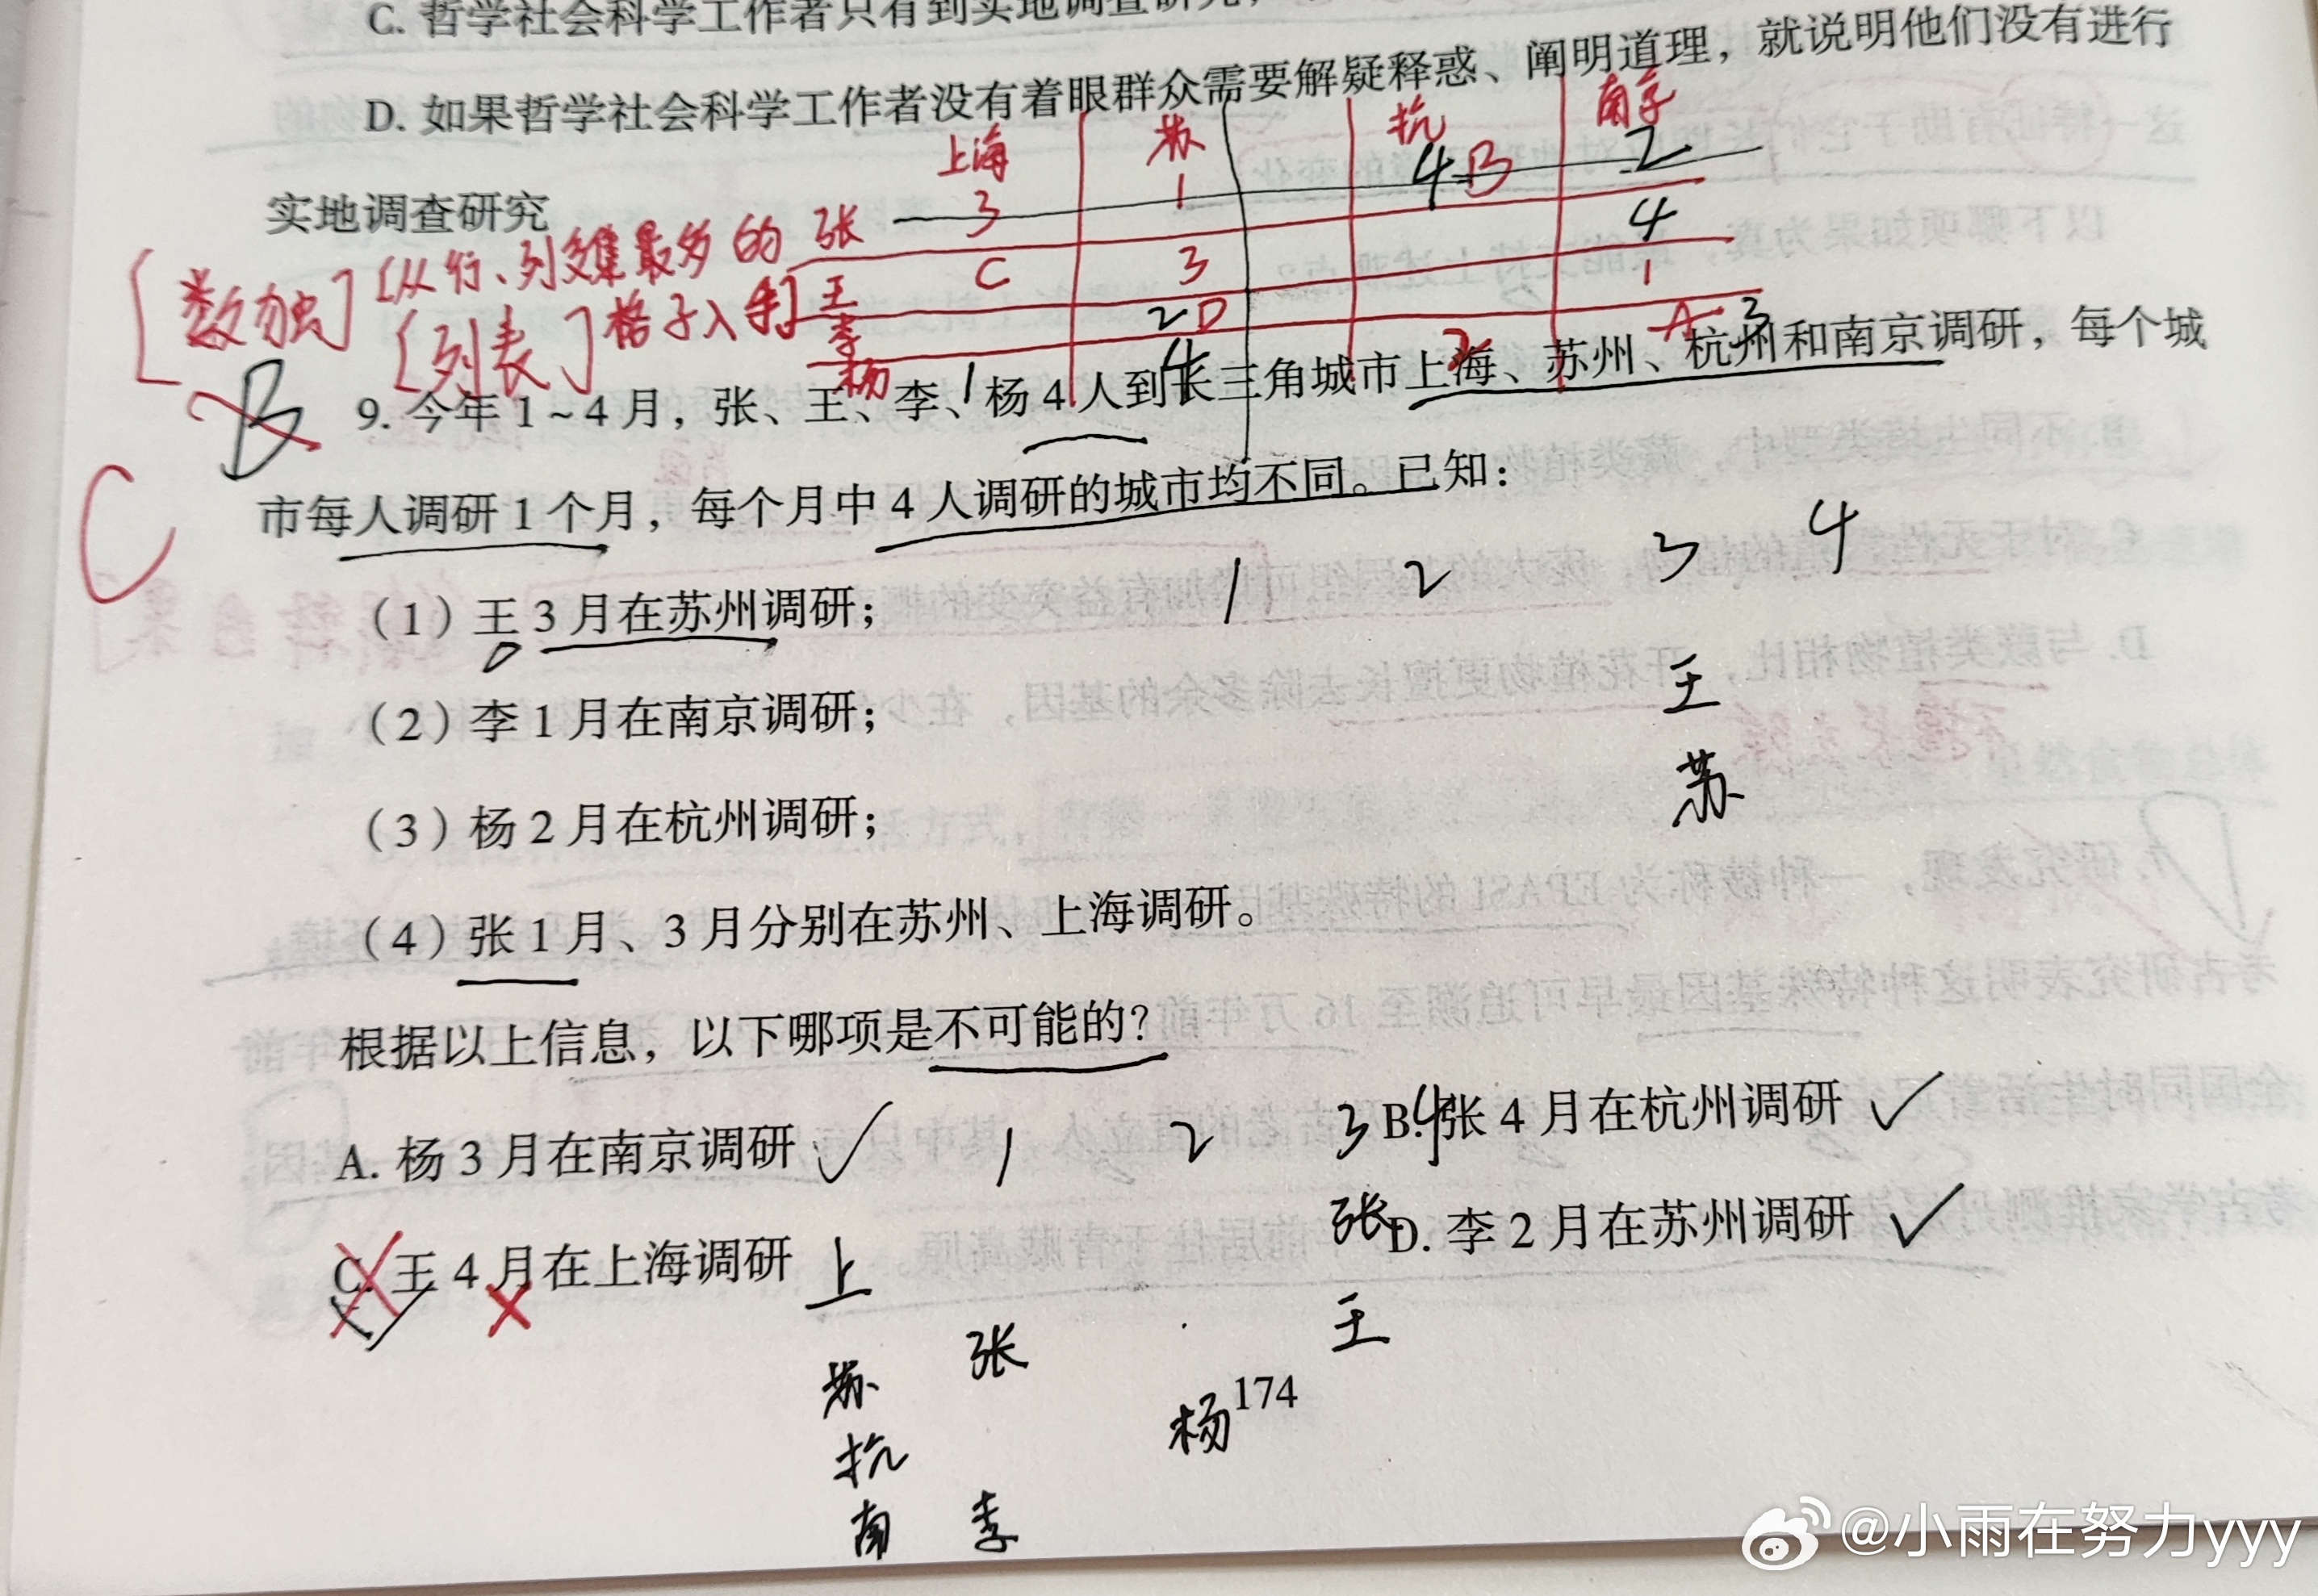 C. 哲学社会科学工作者只有到实地调查研究，
D. 如果哲学社会科学工作者没有着眼群众需要解疑释惑、阐明道理，就说明他们没有进行
实地调查研究
上海 苏 杭 南京
张 3 1 4 B 2
王 C 3 4
李 2 D 1
杨 1 4 2 A 3
[数独] [从行、列交集最多的
[列表] 格子入手]
B
C
9. 今年 1～4 月，张、王、李、杨 4 人到长三角城市上海、苏州、杭州和南京调研，每个城
市每人调研 1 个月，每个月中 4 人调研的城市均不同。已知：
1 2 3 4
（1）王 3 月在苏州调研；
王
（2）李 1 月在南京调研；
苏
（3）杨 2 月在杭州调研；
（4）张 1 月、3 月分别在苏州、上海调研。
根据以上信息，以下哪项是不可能的？
A. 杨 3 月在南京调研
B. 张 4 月在杭州调研
C. 王 4 月在上海调研
D. 李 2 月在苏州调研
1 2 3 4
上 张
苏 张 王
杭 杨
南 李
174
@小雨在努力yyy